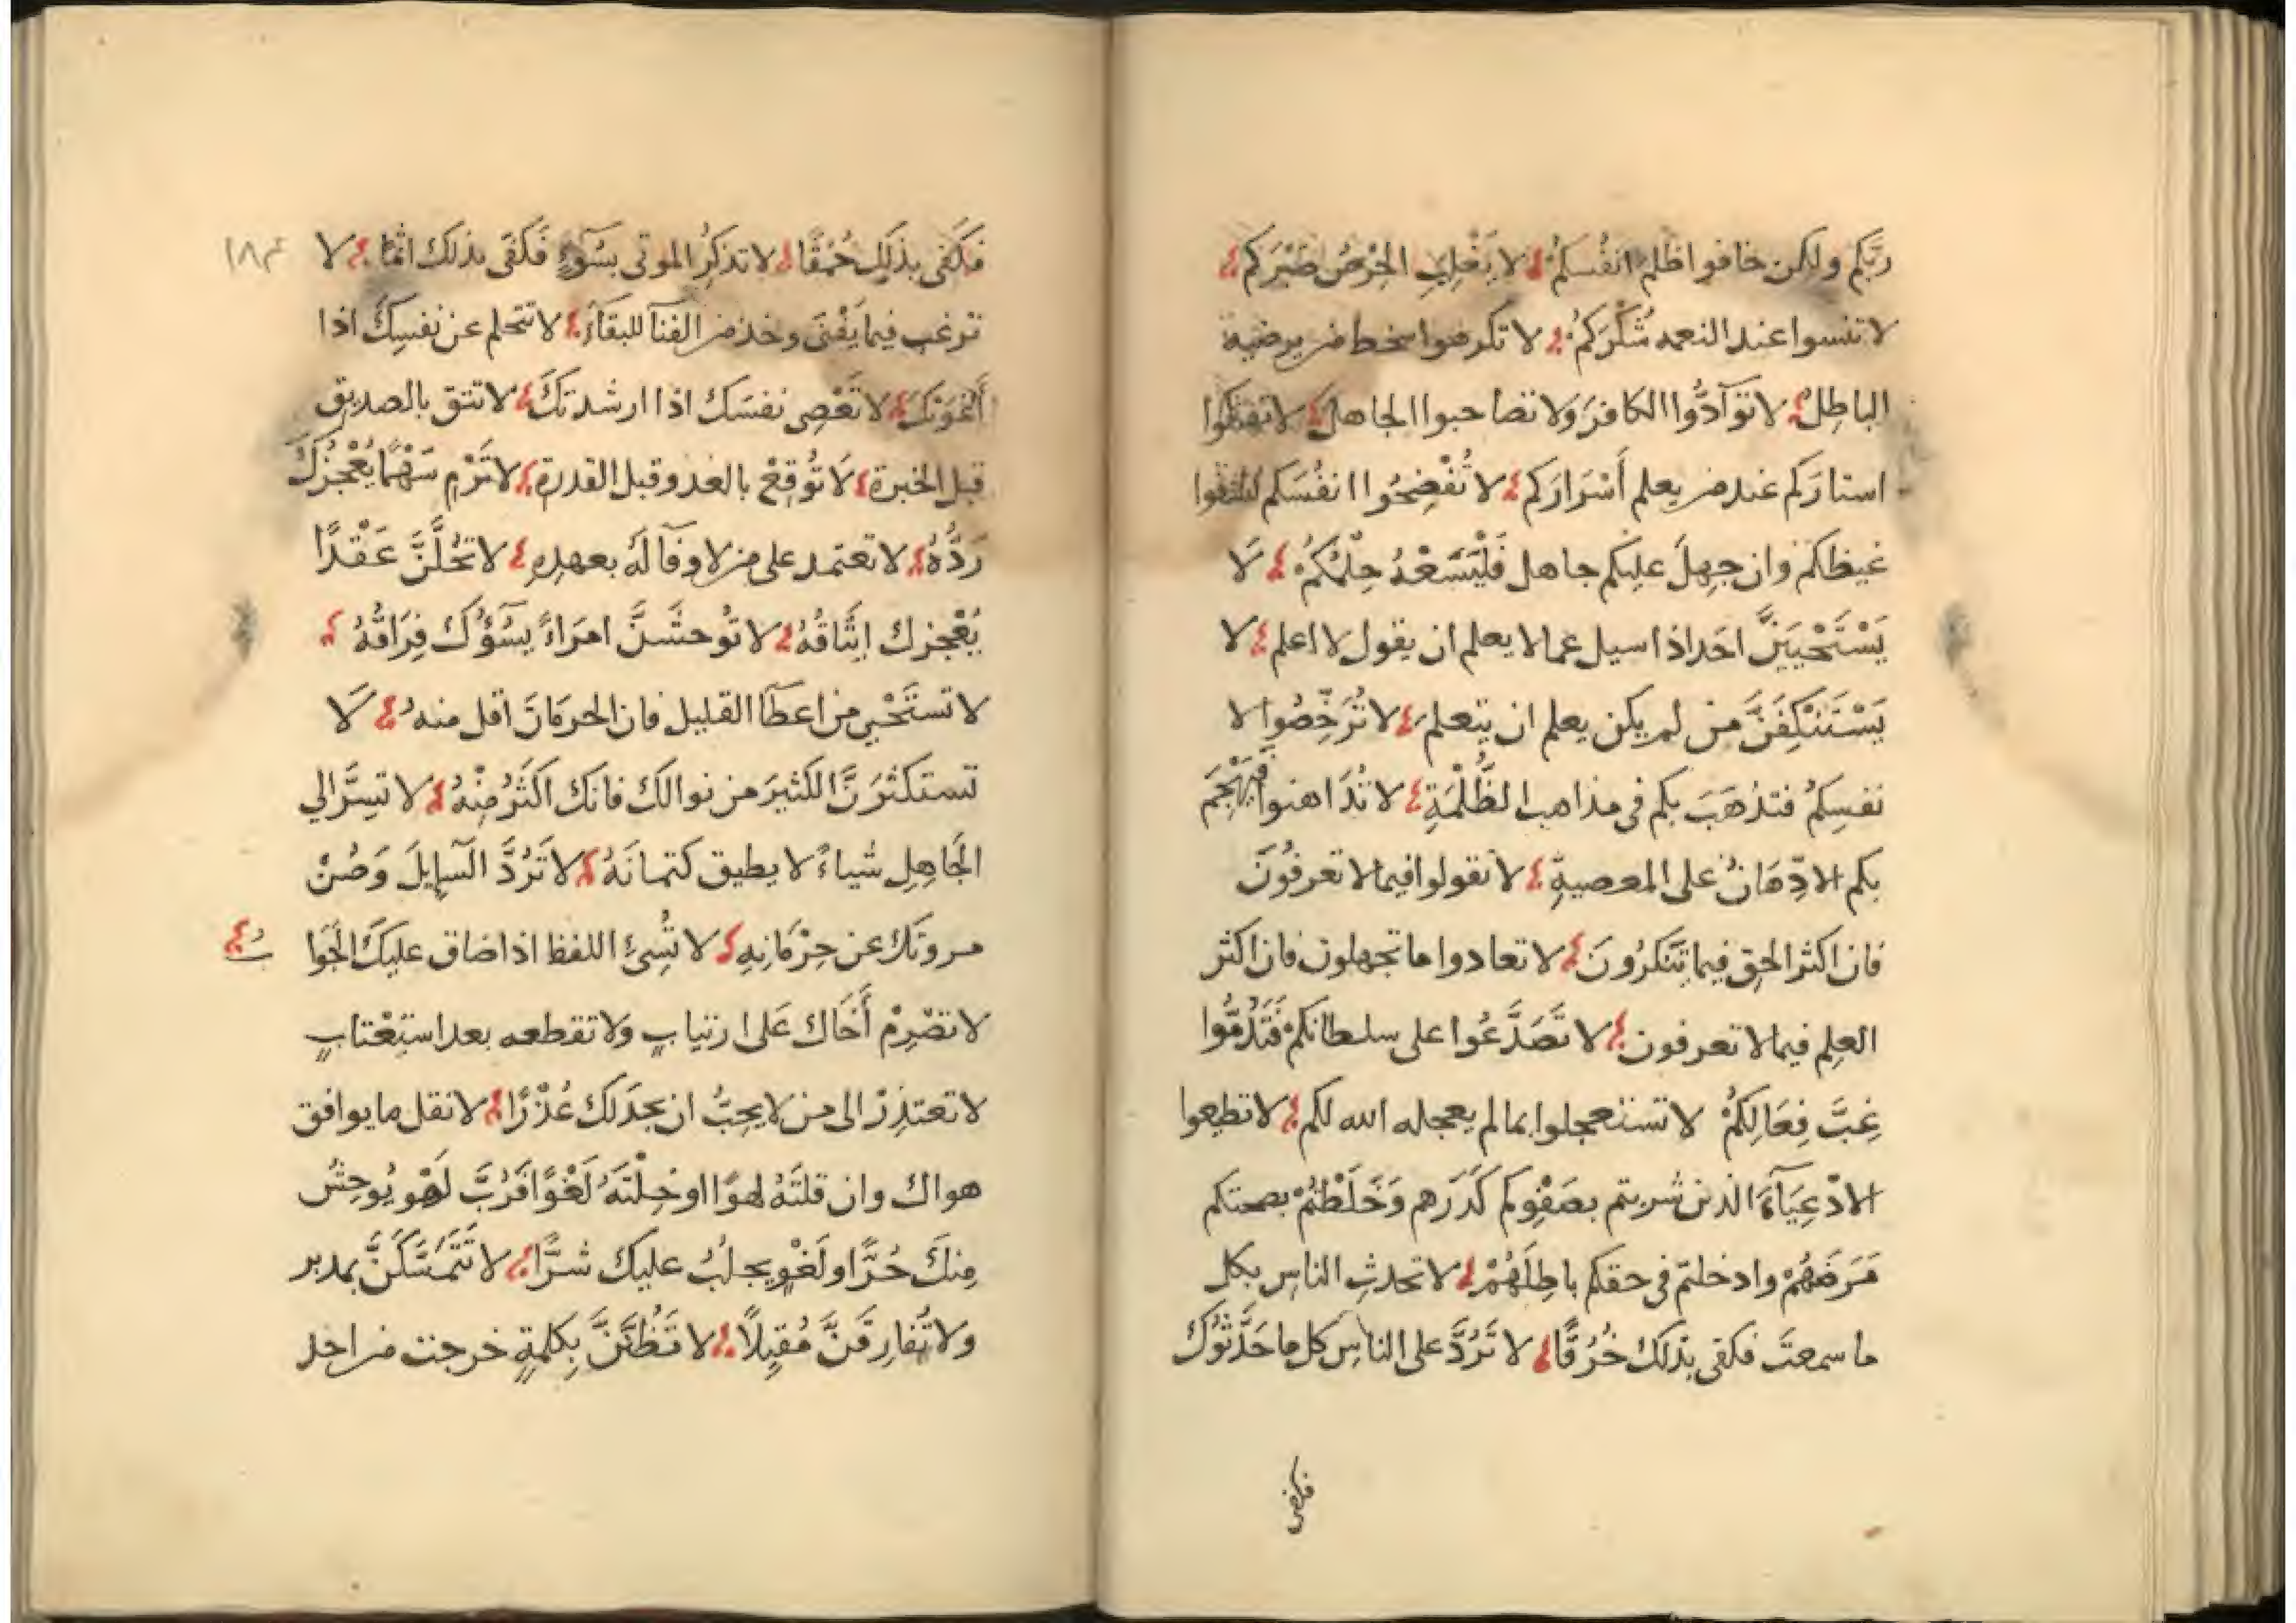 ربكم ولكن خافوا ظلم انفسكم لا يَغْلِبِ الحِرْصُ صَبْرَكم
لا تنسوا عند النعمه شُكْرَكُم لا تكرهوا سخط من يرضيه
الباطل لا توَآدُّوا الكافرَ وَلا تصاحبوا الجاهل لا تهتكوا
استارَكم عند من يعلم أَسْرَارَكم لا تُفْضِحُوا انفُسَكم لتشفوا
غيظكم وان جهِلَ عليكم جاهل فَلْيَسَعْهُ حِلْمُكُمْ لَا
يَسْتَحْيَيَنَّ احَد اذا سيل عما لا يعلم ان يقول لا اعلم لا
يَسْتَنْكِفَنَّ مَن لم يكن يعلم ان يتعلم لا تُرَخِّصُوا لا
نفسِكمُ فتذهَبَ بكم فى مذاهب الظُّلْمَةِ لا تُدَاهنوا فَيَهْجُمَ
بكم الادِّهَانُ على المعصيةِ لا تقولوا فيما لا تعرفُونَ
فان اكثر الحق فيما تُنكرُونَ لا تعادوا ما تجهلون فان اكثر
العِلِم فيما لا تعرفون لا تَصَدَّعُوا على سلطانكمْ فَتَذُمُّوا
غِبَّ فِعَالِكُمْ لا تستعجلوا بما لم يعجله الله لكم لا تطيعوا
الادْعِيَآءَ الذين شربتم بصَفْوِكم كَدَرَهم وَخَلَطْتُمْ بصحتكم
مَرَضَهُمْ وادخلتم فى حقكم باطِلَهُمْ لا تحدثِ الناس بكل
ما سمعتَ فكفى بذلك خُرْقًا لا تَرُدَّ على الناسِ كل ما حَدَّثُوكَ
فكفى
فَكَفى بذَلِك حُمْقًا لا تذكرُ الموتى بسُوٓءٍ فَكَفَى بذلك اثمًا لا
ترغب فيما يَفْنَى وخذ من الفنآ للبقآءِ لا تحلم عن نفسِكَ اذا
أَغْوَتْكَ لا تَعْصِى نفسَك اذا ارشدتكَ لا تثق بالصديق
قبل الخبرة لَا تُوقِعْ بالعدو قبل القدرة لا تَرْمِ سَهْمًا يُعْجزُكَ
رَدُّهُ لا تعتمد على من لا وفآ لَهُ بعهدِهِ لا تحُلَّنَّ عَقْدًا
يُعْجزك ايثَاقُهُ لا توُحشَنَّ امرَاءً يسُؤُك فِرَاقُهُ
لا تستَحْيِ من اعطآ القليل فان الحرمَانَ اقل منهُ لَا
تستكثرَنَّ الكَثيرَ من نوالكَ فانك اكثَرُ مِنْهُ لا تسِرَّ الي
الجَاهِلِ شياءً لا يطيق كتمانَهُ لا تَرُدَّ السَّايِلَ وَصُنْ
مروتَك عن حِرْمَانِهِ لا تُسِئ اللفظ اذا ضاق عليكَ الجَوا
بُ
لا تصْرِمْ أَخَاك عَلى ارتيابٍ ولا تقطعه بعد استِعْتابٍ
لا تعتذِرْ الى من لا يحِبُّ ان يجدَ لك عُذْرًا لا تقل ما يوافق
هواك وان قلتَهُ لهوًا او خِلْتَهُ لَغْوًا فَرُبَّ لَهْوٍ يُوحِشُ
مِنكَ حُرًّا ولَغْوٍ يجلُبُ عليكَ شرًّا لا تَتَمَسَّكَنَّ بمدبر
ولا تُفارِقَنَّ مُقبِلًا لا تَظُنَّنَّ بِكلمةٍ خرجت من احد